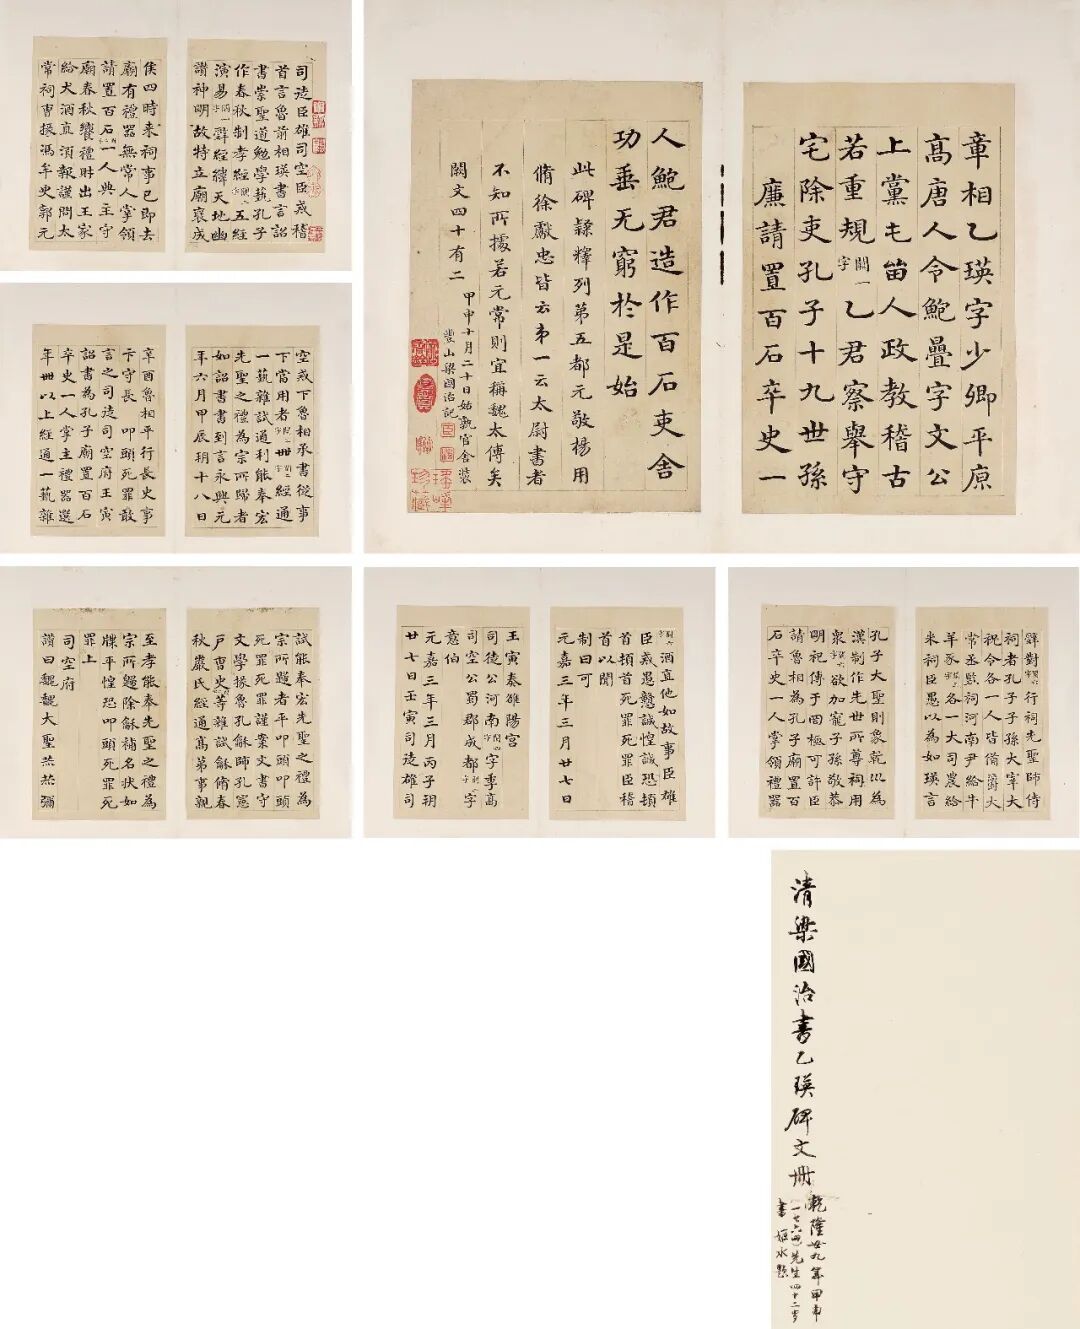 司徒臣雄司空臣戒稽
首言魯前相瑛書言詔
書崇聖道勉學藝孔子
作春秋制孝經五經
演易辭經緯天地幽
讃神明故特立廟襃成
侯四時来祠事已即去
廟有禮器無常人掌領
請置百石一人典主守
廟春秋饗禮財出王家
給犬酒直須報謹問太
常祠曹掾馮牟史郭元
章相乙瑛字少卿平原
髙唐人令鮑疊字文公
上黨屯留人政教稽古
若重規闕一字乙君察舉守
宅除吏孔子十九世孫
廉請置百石卒史一
人鮑君造作百石吏舍
功垂无窮於是始
此碑隸釋列第五都元敬楊用
脩徐獻忠皆云弟一云太尉書者
不知所據若元常則宜稱魏太傅矣
闕文四十有二
甲申十月二十日姑孰官舍裝
豐山梁國治記
空戒下魯相承書從事
下當用者卌經通
一藝雜試通利能奉宏
先聖之禮為宗所歸者
如詔書書到言永興元
年六月甲辰朔十八日
辛酉魯相平行長史事
卞守長叩頭死罪敢
言之司徒司空府王寅
詔書為孔子廟置百石
卒史一人掌主禮器選
年卌以上經通一藝雜
試能奉宏先聖之禮為
宗所歸者平叩頭叩頭
死罪死罪謹案文書守
文學掾魯孔龢師孔憲
戶曹史等雜試龢脩春
秋嚴氏經通髙第事親
至孝能奉先聖之禮為
宗所歸除龢補名狀如
牒平惶恐叩頭死罪死
罪上
司空府
讃曰巍巍大聖赫赫彌
酒直他如故事臣雄
臣戒愚戇誠惶誠恐頓
首頓首死罪死罪臣稽
首以聞
制曰可
元嘉三年三月廿七日
壬寅奏雒陽宫
司徒公河南字季髙
司空公蜀郡成都字
意伯
元嘉三年三月丙子朔
廿七日壬寅司徒雄司
辟對行祠先聖師侍
祠者孔子子孫大宰大
祝令各一人皆備爵大
常丞監祠河南尹給牛
羊豕各一大司農給
米祠臣愚以為如瑛言
孔子大聖則象乾巛為
漢制作先世所尊祠用
衆欲加寵子孫敬恭
明祀傳于罔極可許臣
請魯相為孔子廟置百
石卒史一人掌領禮器
清梁國治書乙瑛碑文冊
乾隆廿九年甲申
一七六四先生四十二岁
書